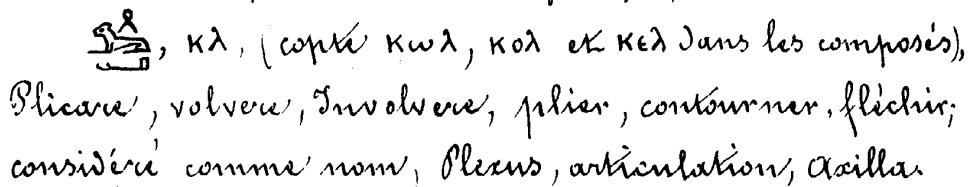 , ⲕⲗ, (copte ⲕⲱⲗ, ⲕⲟⲗ et ⲕⲉⲗ dans les composés),
Plicare, volvere, Involvere, plier, contourner, fléchir;
considéré comme nom, Plexus, articulation, axilla.